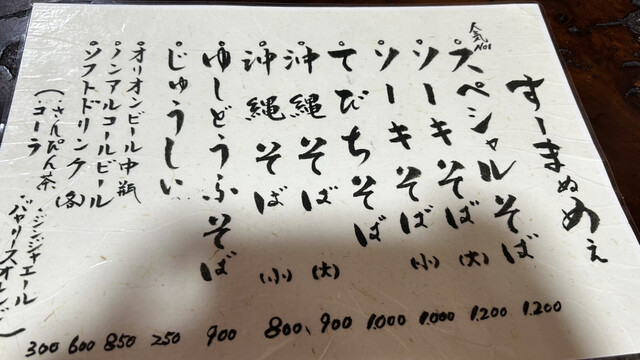 すーまぬめぇ
人気No1
°スペシャルそば 1.200
°ソーキそば (大) 1.200
°ソーキそば (小) 1.000
°てびちそば 1.000
°沖縄そば (大) 900
°沖縄そば (小) 800、
°ゆしどうふそば 900
°じゅうしい 250
°オリオンビール中瓶 850
°ノンアルコールビール 600
°ソフトドリンク(各) 300
(・さんぴん茶 ・ジンジャエール
・コーラ ・バヤリースオレンジ)